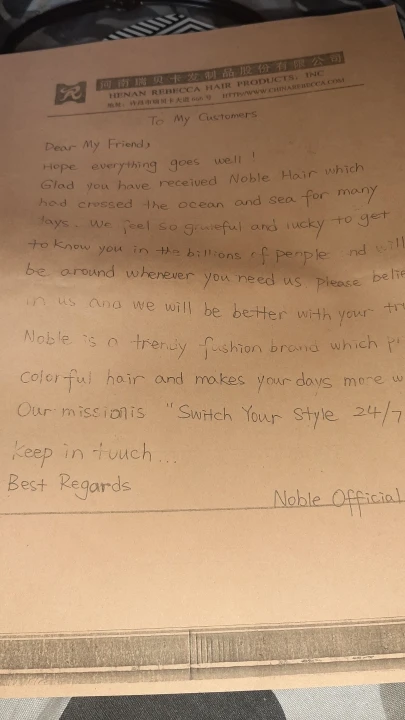 河南瑞贝卡发制品股份有限公司
HENAN REBECCA HAIR PRODUCTS, INC
HTTP://WWW.CHINAREBECCA.COM
To My Customers
Dear My Friend,
Hope everything goes well !
Glad you have received Noble Hair which
had crossed the ocean and sea for many
days. We feel so grateful and lucky to get
to know you in the billions of people nd will
be around whenever you need us please belie
in us and we will be better with your tr
Noble is a trendy fashion brand which p
colorful hair and makes your days more w
Our mission is "Switch Your Style 24/7
keep in touch...
Best Regards
Noble Official